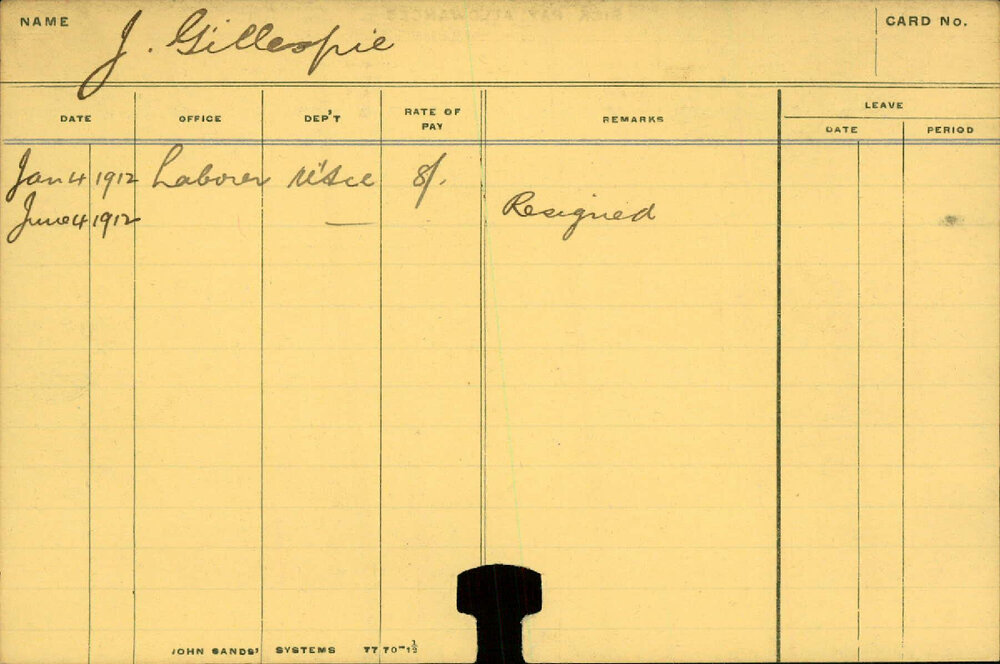 NAME J. Gillespie CARD No.
DATE OFFICE DEP'T RATE OF PAY REMARKS LEAVE DATE PERIOD
Jan 4 1912 Laborer 8/.
June 4 1912 — Resigned
JOHN SANDS' SYSTEMS 7770-1/12